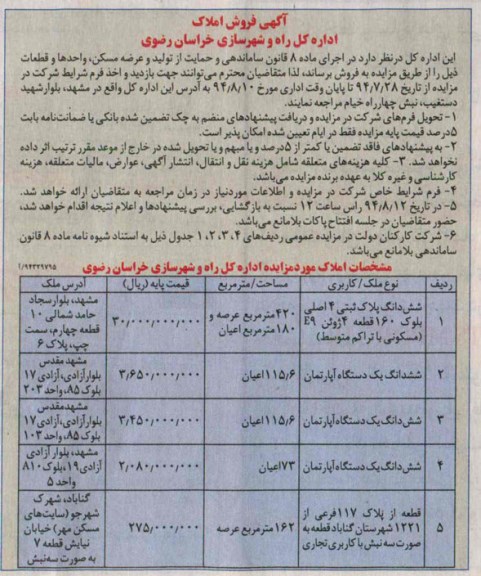 آگهی فروش املاک
اداره کل راه و شهرسازی خراسان رضوی
این اداره کل درنظر دارد در اجرای ماده ۸ قانون ساماندهی و حمایت از تولید و عرضه مسکن، واحدها و قطعات
ذیل را از طریق مزایده به فروش برساند، لذا متقاضیان محترم می‌توانند جهت بازدید و اخذ فرم شرایط شرکت در
مزایده از تاریخ ۹۴/۷/۲۸ تا پایان وقت اداری مورخ ۹۴/۸/۱۰ به آدرس این اداره کل واقع در مشهد، بلوارشهید
دستغیب، نبش چهارراه خیام مراجعه نمایند.
۱- تحویل فرم‌های شرکت در مزایده و دریافت پیشنهادهای منضم به چک تضمین شده بانکی یا ضمانت‌نامه بابت
۵درصد قیمت پایه مزایده فقط در ایام تعیین شده امکان پذیر است.
۲- به پیشنهادهای فاقد تضمین یا کمتر از ۵درصد و یا مبهم و یا تحویل شده در خارج از موعد مقرر ترتیب اثر داده
نخواهد شد. ۳- کلیه هزینه‌های متعلقه شامل هزینه نقل و انتقال، انتشار آگهی، عوارض، مالیات متعلقه، هزینه
کارشناسی و غیره کلا به عهده برنده مزایده می‌باشد.
۴- فرم شرایط خاص شرکت در مزایده و اطلاعات موردنیاز در زمان مراجعه به متقاضیان ارائه خواهد شد.
۵- در تاریخ ۹۴/۸/۱۲ راس ساعت ۱۲ نسبت به بازگشایی، بررسی پیشنهادها و اعلام نتیجه اقدام خواهد شد،
حضور متقاضیان در جلسه افتتاح پاکات بلامانع می‌باشد.
۶- شرکت کارکنان دولت در مزایده عمومی ردیف‌های ۴، ۳، ۲، ۱ جدول ذیل به استناد شیوه نامه ماده ۸ قانون
ساماندهی بلامانع می‌باشد.
۹۴۳۲۹۷۹۵/
مشخصات املاک موردمزایده اداره کل راه و شهرسازی خراسان رضوی
ردیف نوع ملک/کاربری مساحت/مترمربع قیمت پایه (ریال) آدرس ملک
۱ شش‌دانگ پلاک ثبتی ۴ اصلی بلوک ۱۶۰ قطعه ۴ زون E9 (مسکونی با تراکم متوسط) ۴۲۰مترمربع عرصه و ۱۸۰مترمربع اعیان ۳۰/۰۰۰/۰۰۰/۰۰۰ مشهد، بلوارسجاد حامد شمالی ۱۰ قطعه چهارم، سمت چپ، پلاک ۶
۲ ششدانگ یک دستگاه آپارتمان ۱۱۵/۶اعیان ۳/۶۵۰/۰۰۰/۰۰۰ مشهدمقدس بلوارآزادی، آزادی ۱۷ بلوک ۸۵، واحد ۲۰۳
۳ شش‌دانگ یک دستگاه آپارتمان ۱۱۵/۶اعیان ۳/۴۵۰/۰۰۰/۰۰۰ مشهدمقدس بلوارآزادی، آزادی ۱۷ بلوک ۸۵، واحد ۱۰۳
۴ شش‌دانگ یک دستگاه آپارتمان ۷۳اعیان ۲/۰۸۰/۰۰۰/۰۰۰ مشهد، بلوار آزادی آزادی ۱۹، بلوک ۸۱۰ واحد ۵
۵ قطعه از پلاک ۱۱۷ فرعی از ۱۲۲۱ شهرستان گناباد قطعه به صورت سه نبش با کاربری تجاری ۱۶۲مترمربع عرصه ۲۷۵/۰۰۰/۰۰۰ گناباد، شهرک شهرجو (سایت‌های مسکن مهر) خیابان نیایش قطعه ۷ به صورت سه‌نبش